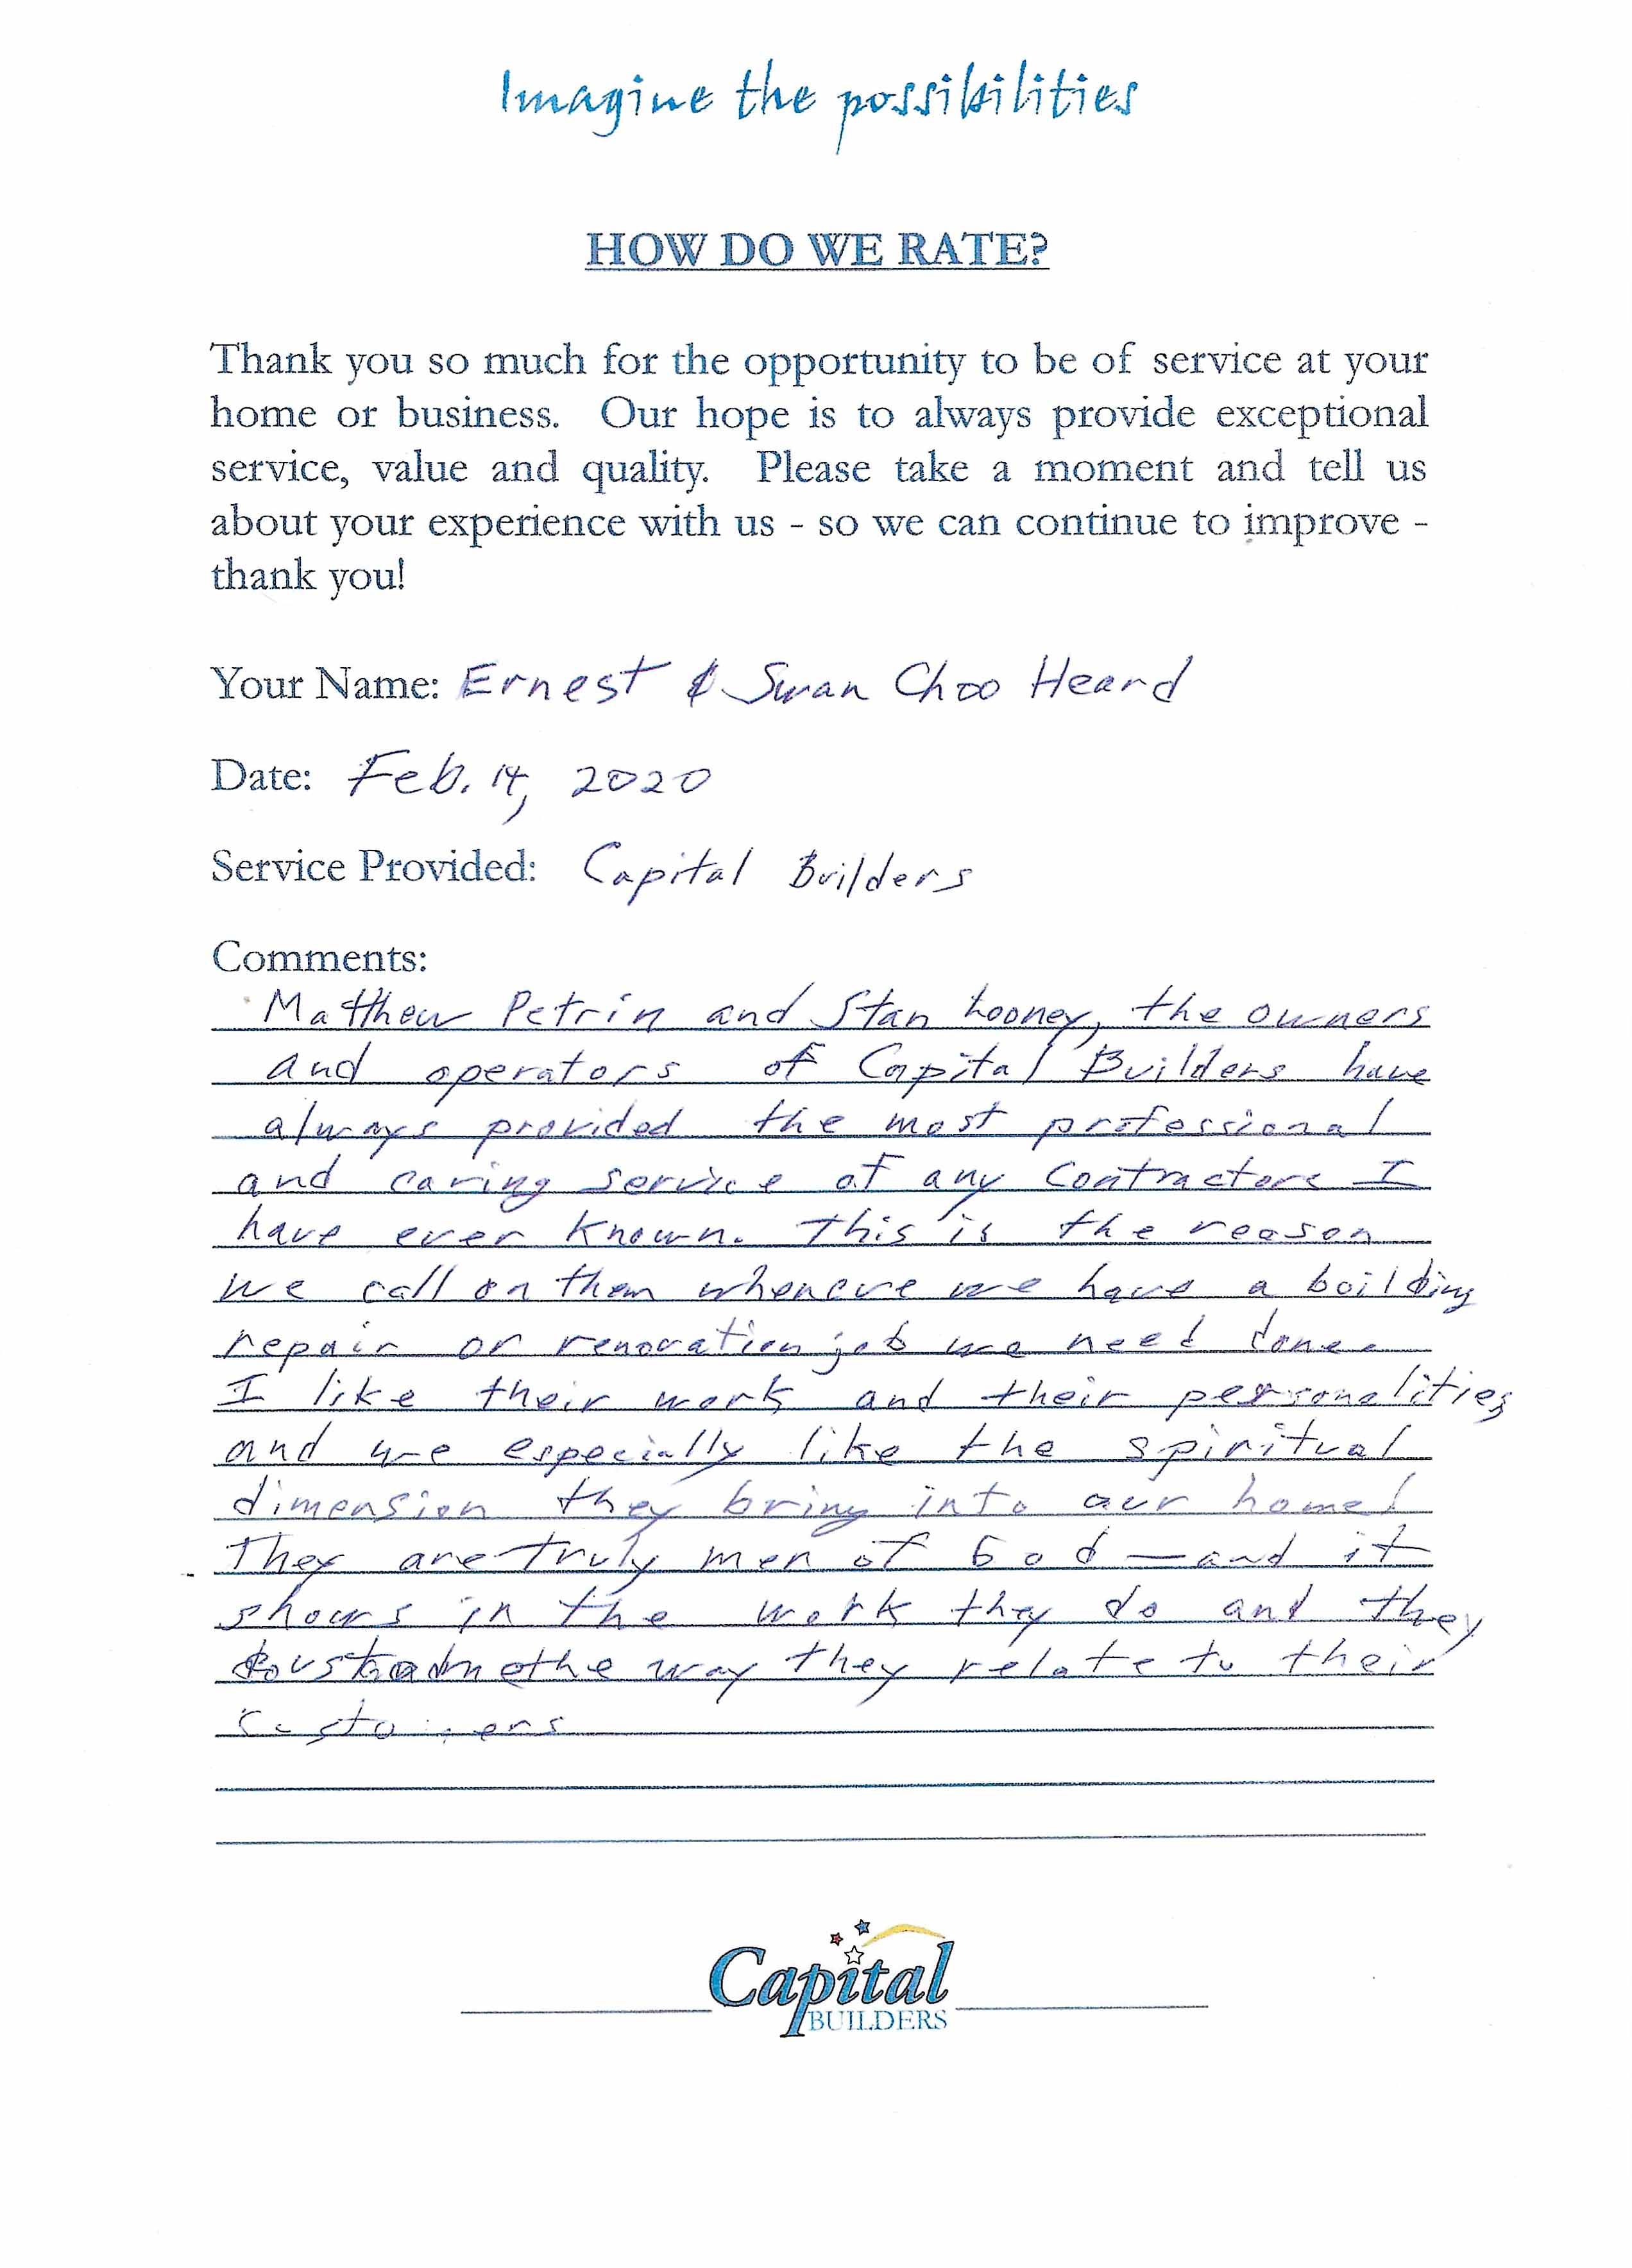 Imagine the possibilities
HOW DO WE RATE?
Thank you so much for the opportunity to be of service at your
home or business. Our hope is to always provide exceptional
service, value and quality. Please take a moment and tell us
about your experience with us - so we can continue to improve -
thank you!
Your Name: Ernest & Swan Choo Heard
Date: Feb. 14, 2020
Service Provided: Capital Builders
Comments:
Matthew Petrin and Stan Looney, the owners
and operators of Capital Builders have
always provided the most professional
and caring service of any contractors I
have ever known. This is the reason
we call on them whenever we have a building
repair or renovation job we need done.
I like their work and their personalities
and we especially like the spiritual
dimension they bring into our home!
They are truly men of God — and it
shows in the work they do and they
the way they relate to their
customers
Capital
BUILDERS